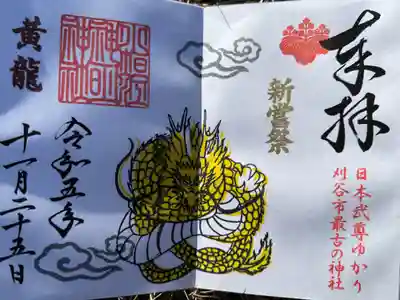 奉拝
日本武尊ゆかり
刈谷市最古の神社
新嘗祭
小垣江
神明
神社
黄龍
令和五年
十一月二十五日